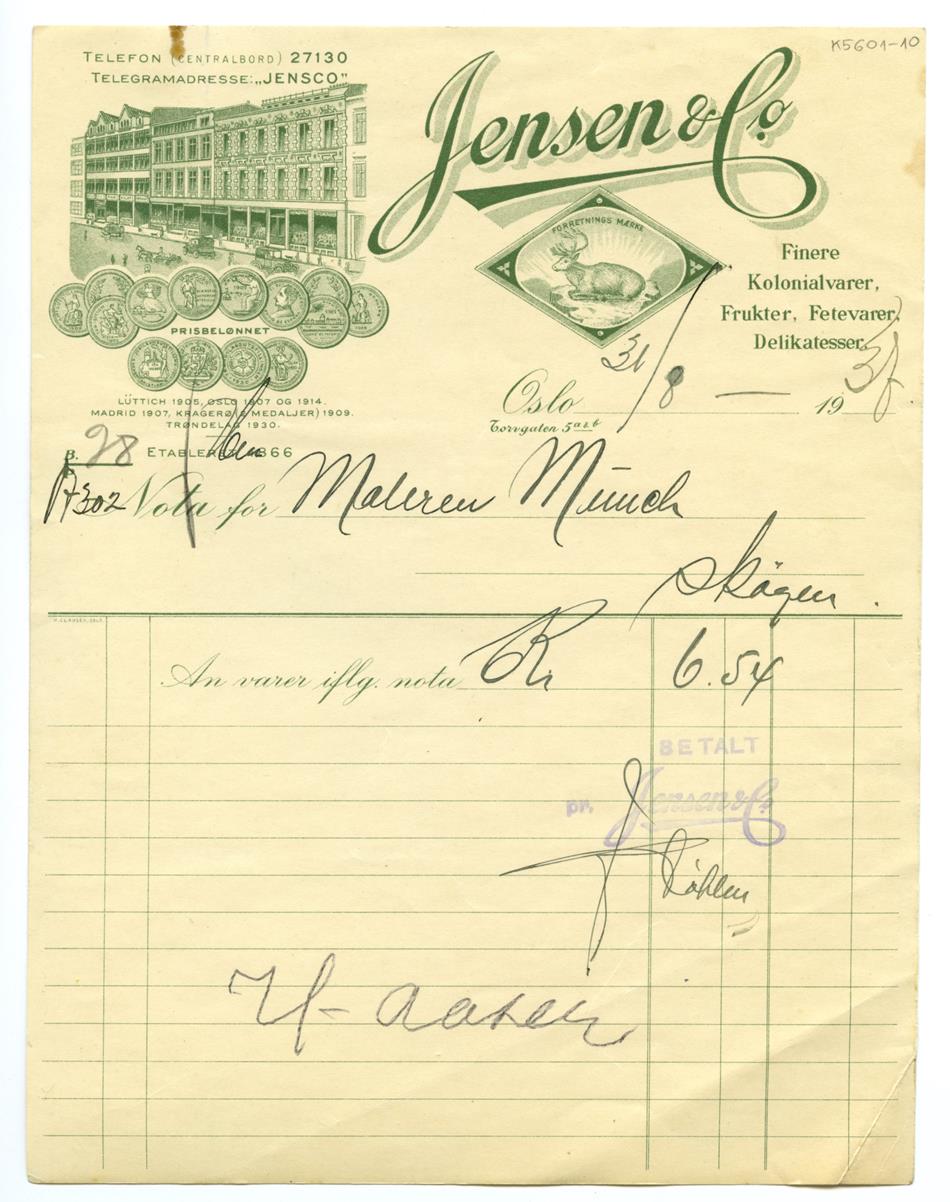 K5601-10
TELEFON (CENTRALBORD) 27130
TELEGRAMADRESSE: „JENSCO"
Jensen & Co.
FORRETNINGS MÆRKE
Finere
Kolonialvarer,
Frukter, Fetevarer,
Delikatesser.
PRISBELØNNET
LÜTTICH 1905, OSLO 1907 OG 1914.
MADRID 1907, KRAGERØ (2 MEDALJER) 1909.
TRØNDELAG 1930.
ETABLERET 1866
Oslo 31/8 — 19 38
Torvgaten 5 a & b
B. 98
A302
Nota for Maleren Munch
Skøyen.
H. CLAUSEN, OSLO
An varer iflg. nota Kr 6.54
BETALT
pr. Jensen & Co.